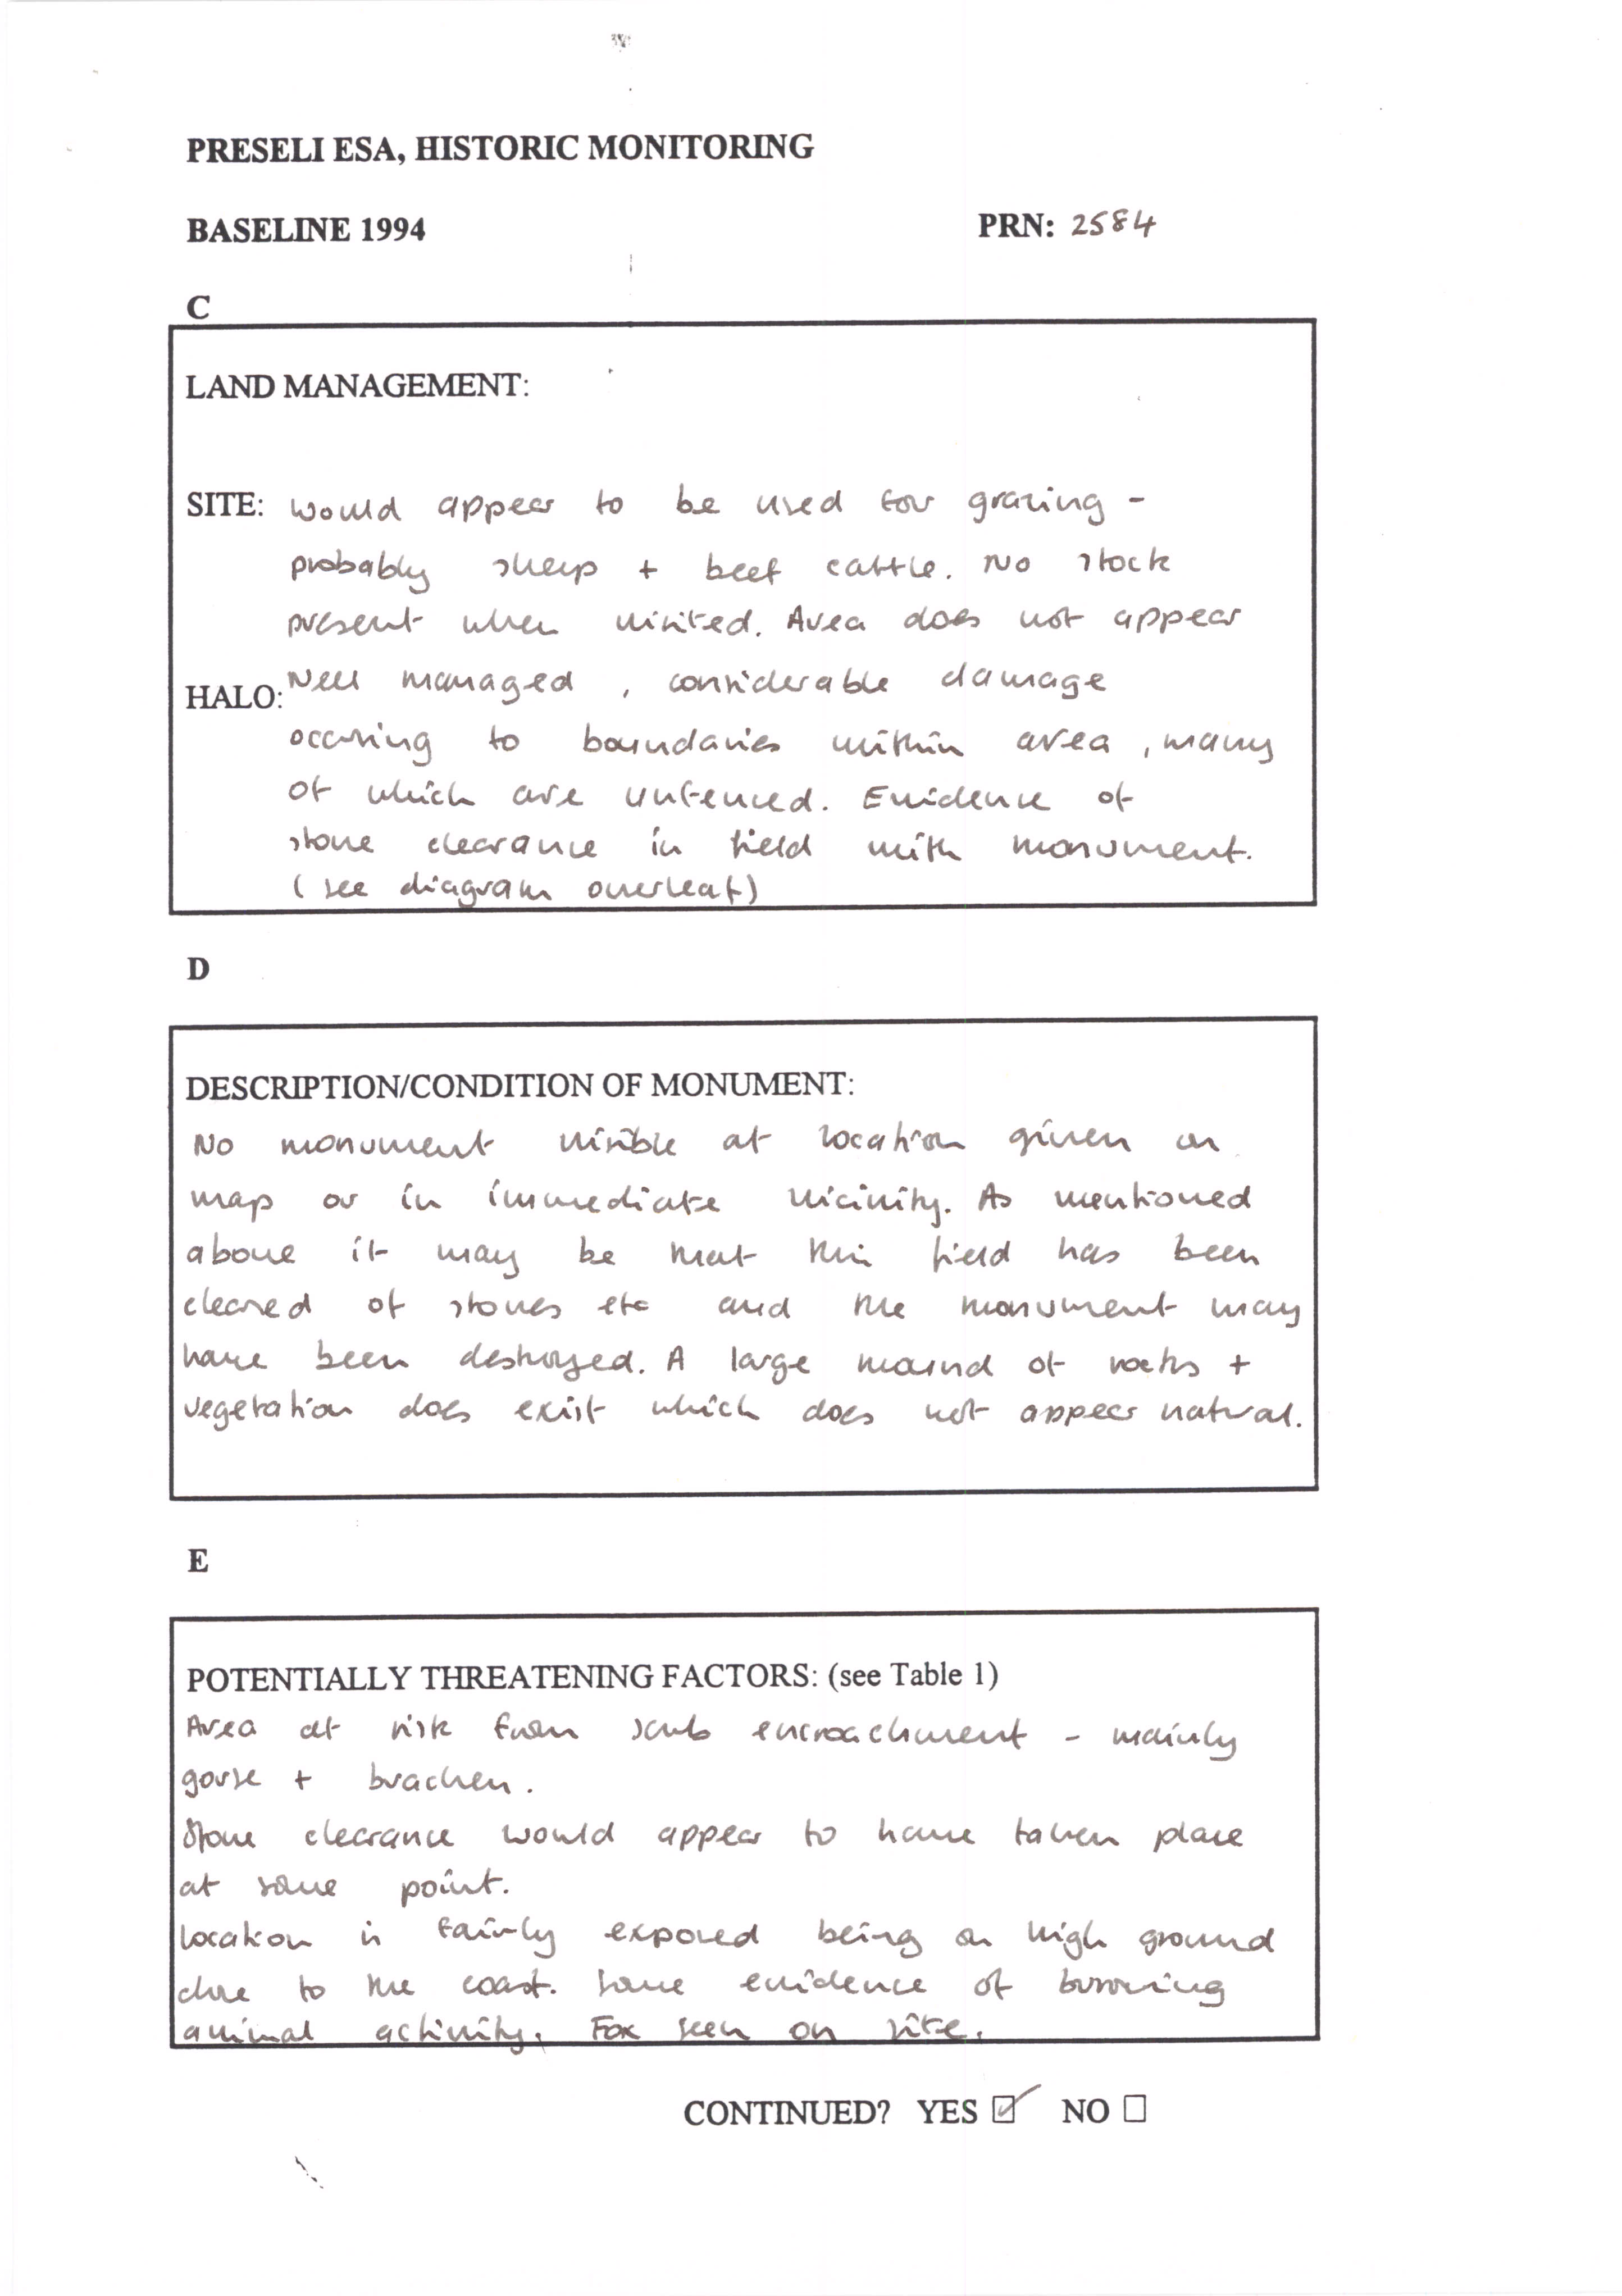 PRESELI ESA, HISTORIC MONITORING
BASELINE 1994 PRN: 2584
C
LAND MANAGEMENT:
SITE: Would appear to be used for grazing -
probably sheep + beef cattle. No stock
present when visited. Area does not appear
HALO: well managed, considerable damage
occuring to boundaries within area, many
of which are unfenced. Evidence of
stone clearance in field with monument.
(see diagram overleaf)
D
DESCRIPTION/CONDITION OF MONUMENT:
No monument visible at location given on
map or in immediate vicinity. As mentioned
above it may be that this field has been
cleared of stones etc and the monument may
have been destroyed. A large mound of rocks +
vegetation does exist which does not appear natural.
E
POTENTIALLY THREATENING FACTORS: (see Table 1)
Area at risk from scrub encroachment - mainly
gorse + bracken.
Stone clearance would appear to have taken place
at some point.
Location is fairly exposed being on high ground
close to the coast. Some evidence of burrowing
animal activity. Fox seen on site.
CONTINUED? YES ☑ NO ☐